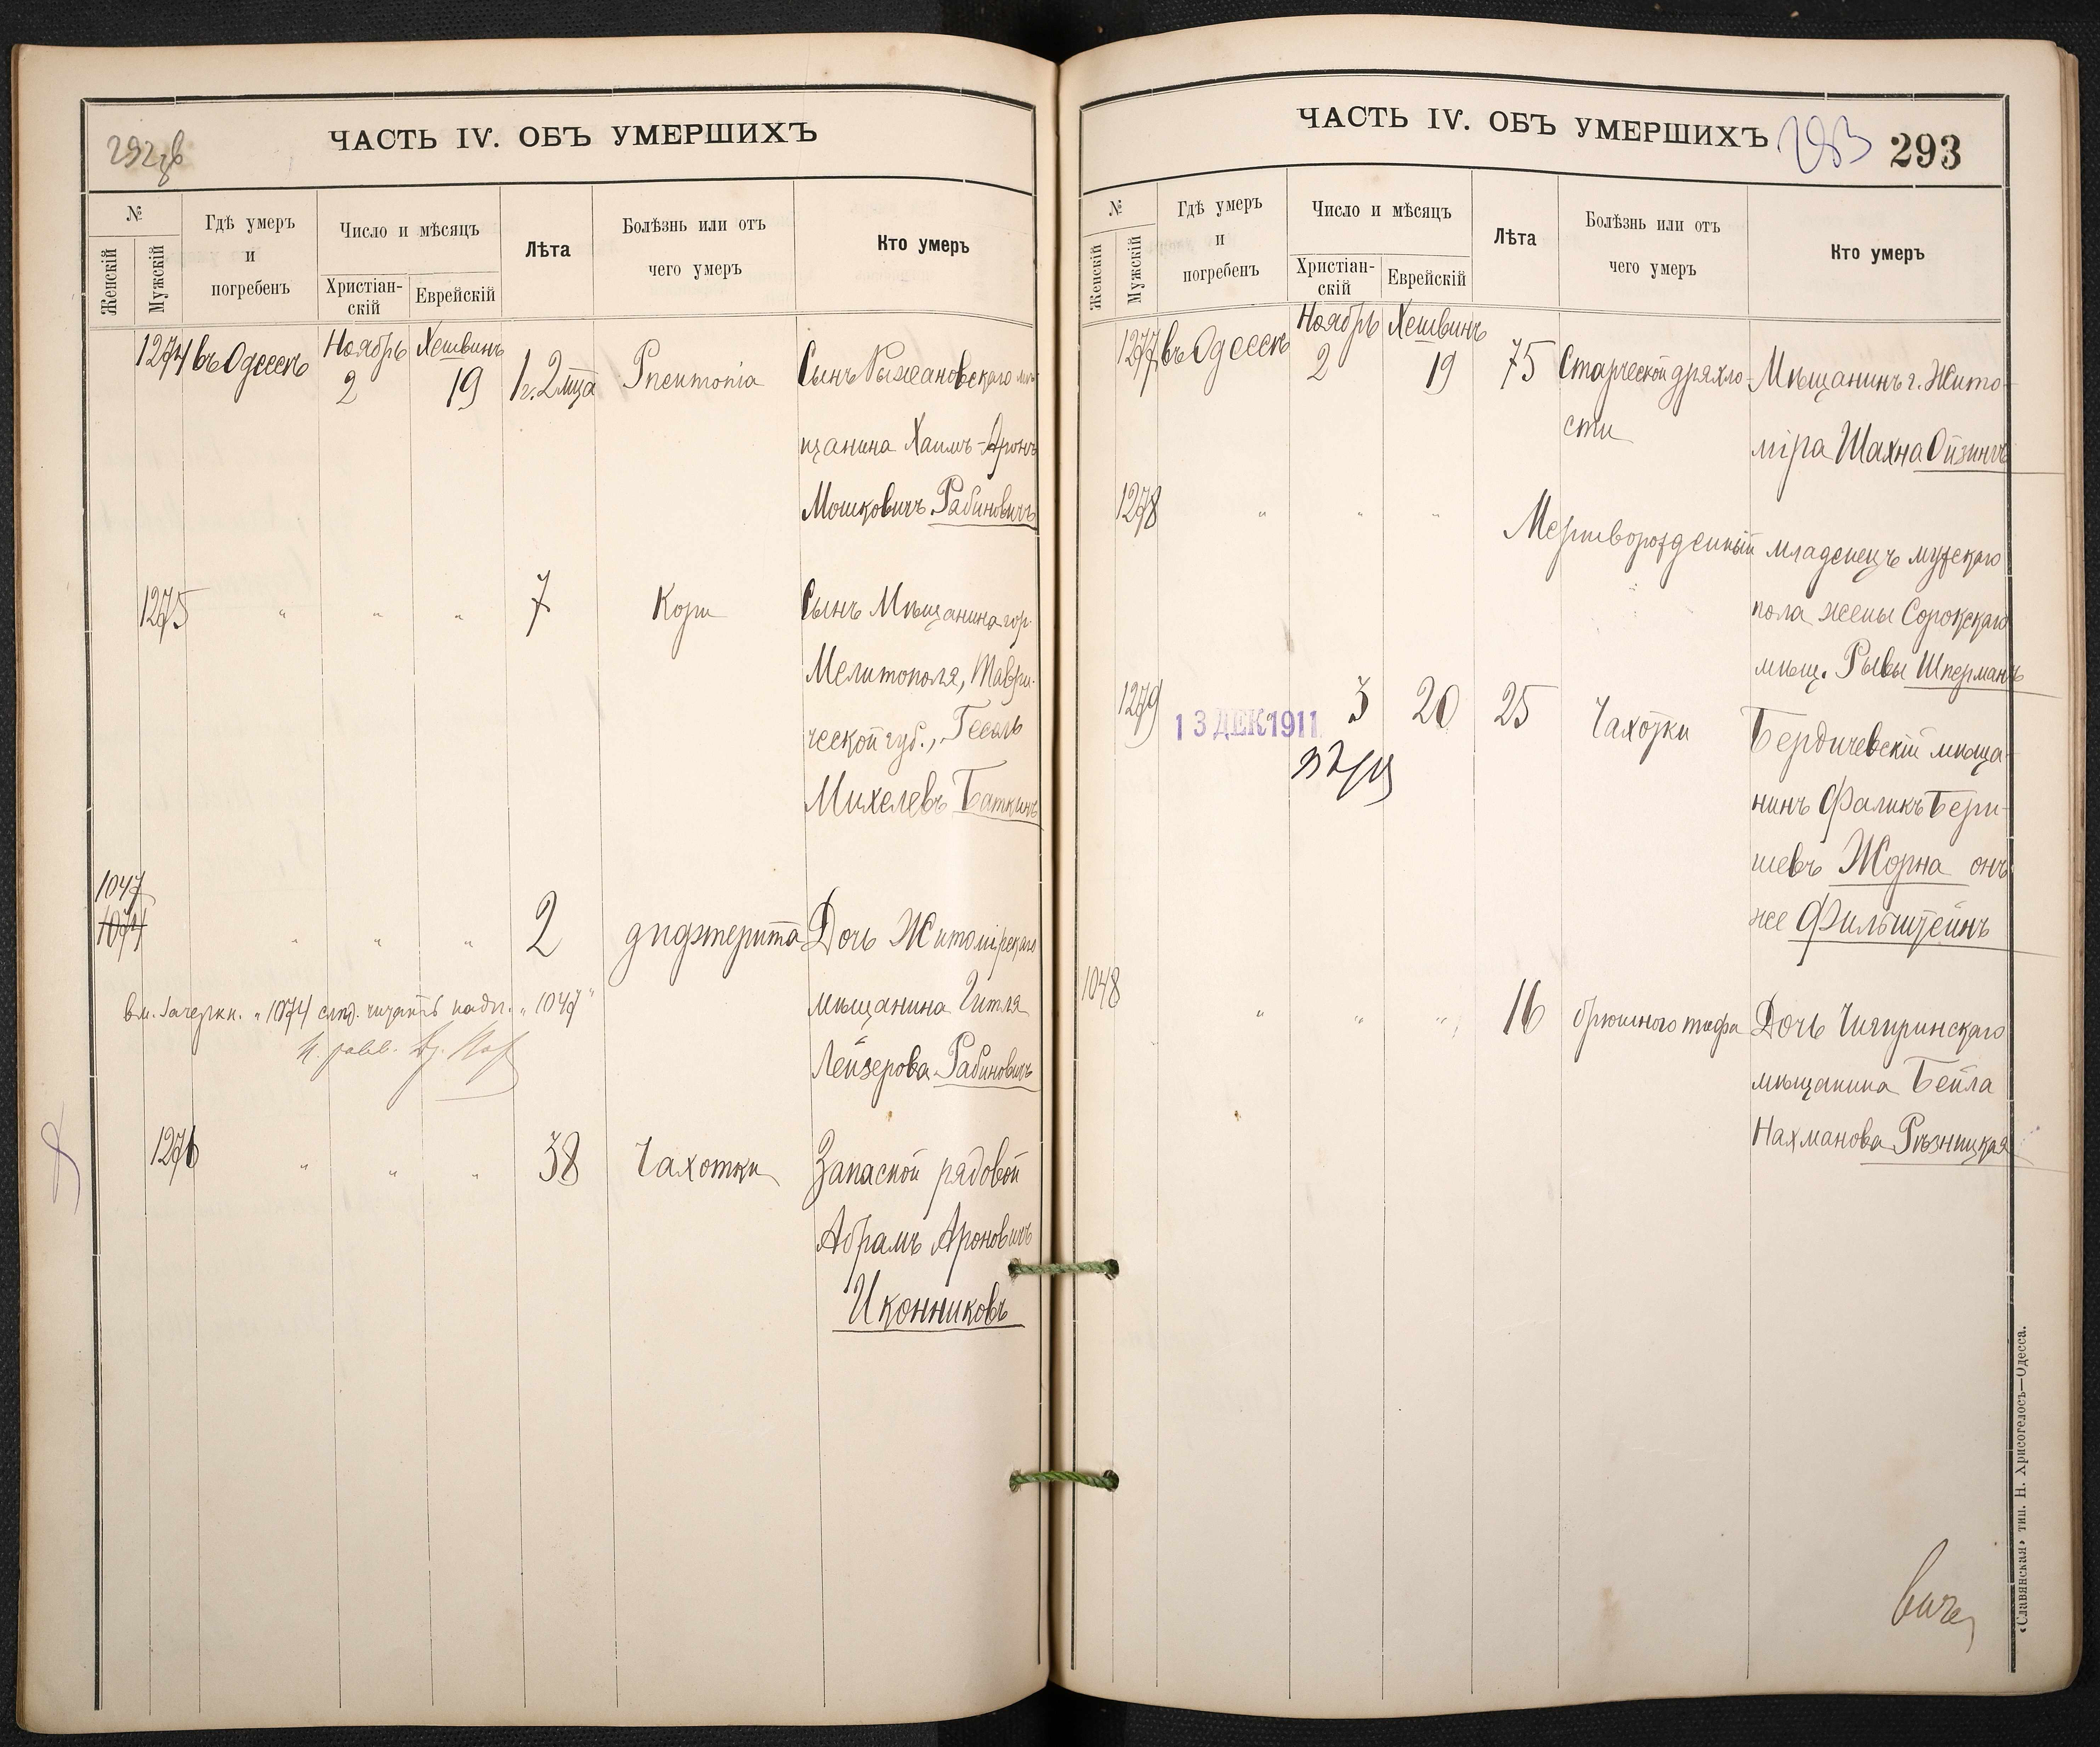 292 об
ЧАСТЬ IV. ОБЪ УМЕРШИХЪ
№
Женскій
Мужскій
Гдѣ умеръ
и
погребенъ
Число и мѣсяцъ
Христіан-
скій
Еврейскій
Лѣта
Болѣзнь или отъ
чего умеръ
Кто умеръ
1274 въ Одессѣ Ноябрь 2 Хешвинъ 19 1 г. 2 мца Pneumonia Сынъ Рыжановскаго мѣ-
щанина Хаимъ-Аронъ
Мошковичъ Рабиновичъ
1275 " " " 7 Кори Сынъ Мѣщанина гор.
Мелитополя, Таври-
ческой губ., Гесель
Михелевъ Баткинъ
1047
1074 " " " 2 дифтерита Дочь Житомірскаго
мѣщанина Гитля
Лейзерова Рабиновичъ
вм. зачеркн. "1074 слѣд. читать надп. "1047"
1276 " " " 38 Чахотки Запасной рядовой
Абрамъ Ароновичъ
Иконниковъ
ЧАСТЬ IV. ОБЪ УМЕРШИХЪ
293 293
№
Женскій
Мужскій
Гдѣ умеръ
и
погребенъ
Число и мѣсяцъ
Христіан-
скій
Еврейскій
Лѣта
Болѣзнь или отъ
чего умеръ
Кто умеръ
1277 въ Одессѣ Ноябрь 2 Хешвинъ 19 75 Старческой дряхло- Мѣщанинъ г. Жито-
сти міра Шахна Ойзинъ
1278 " " " Мертворожденный младенецъ мужскаго
пола жены Сорокскаго
мѣщ. Рывы Шперманъ
1279 3 20 25 Чахотки Бердичевскій мѣща-
13 ДЕК 1911
нинъ Фаликъ Бери-
шевъ Жорна онъ
же Фильштейнъ
1048 " " " 16 брюшного тифа Дочь Чигиринскаго
мѣщанина Бейла
Нахманова Рѣзницкая
«Славянская» тип. Н. Хрисогелосъ—Одесса.